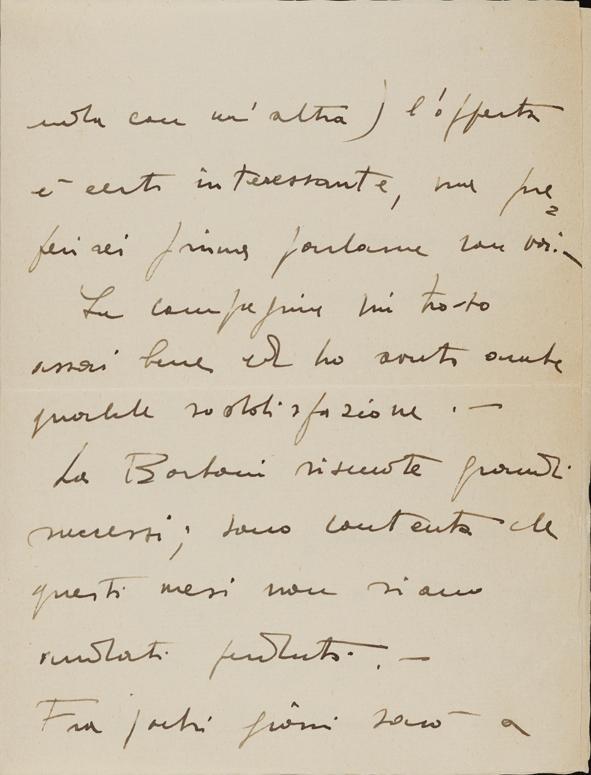 con un' altra) l'offerta
è certo interessante, ma pre=
ferirei prima parlarne con voi. —
In compagnia mi trovo
assai bene ed ho avuto anche
qualche soddisfazione. —
La Borboni riscuote grandi
successi; sono contenta che
questi mesi non siano
andati perduti. —
Fra pochi giorni sarò a